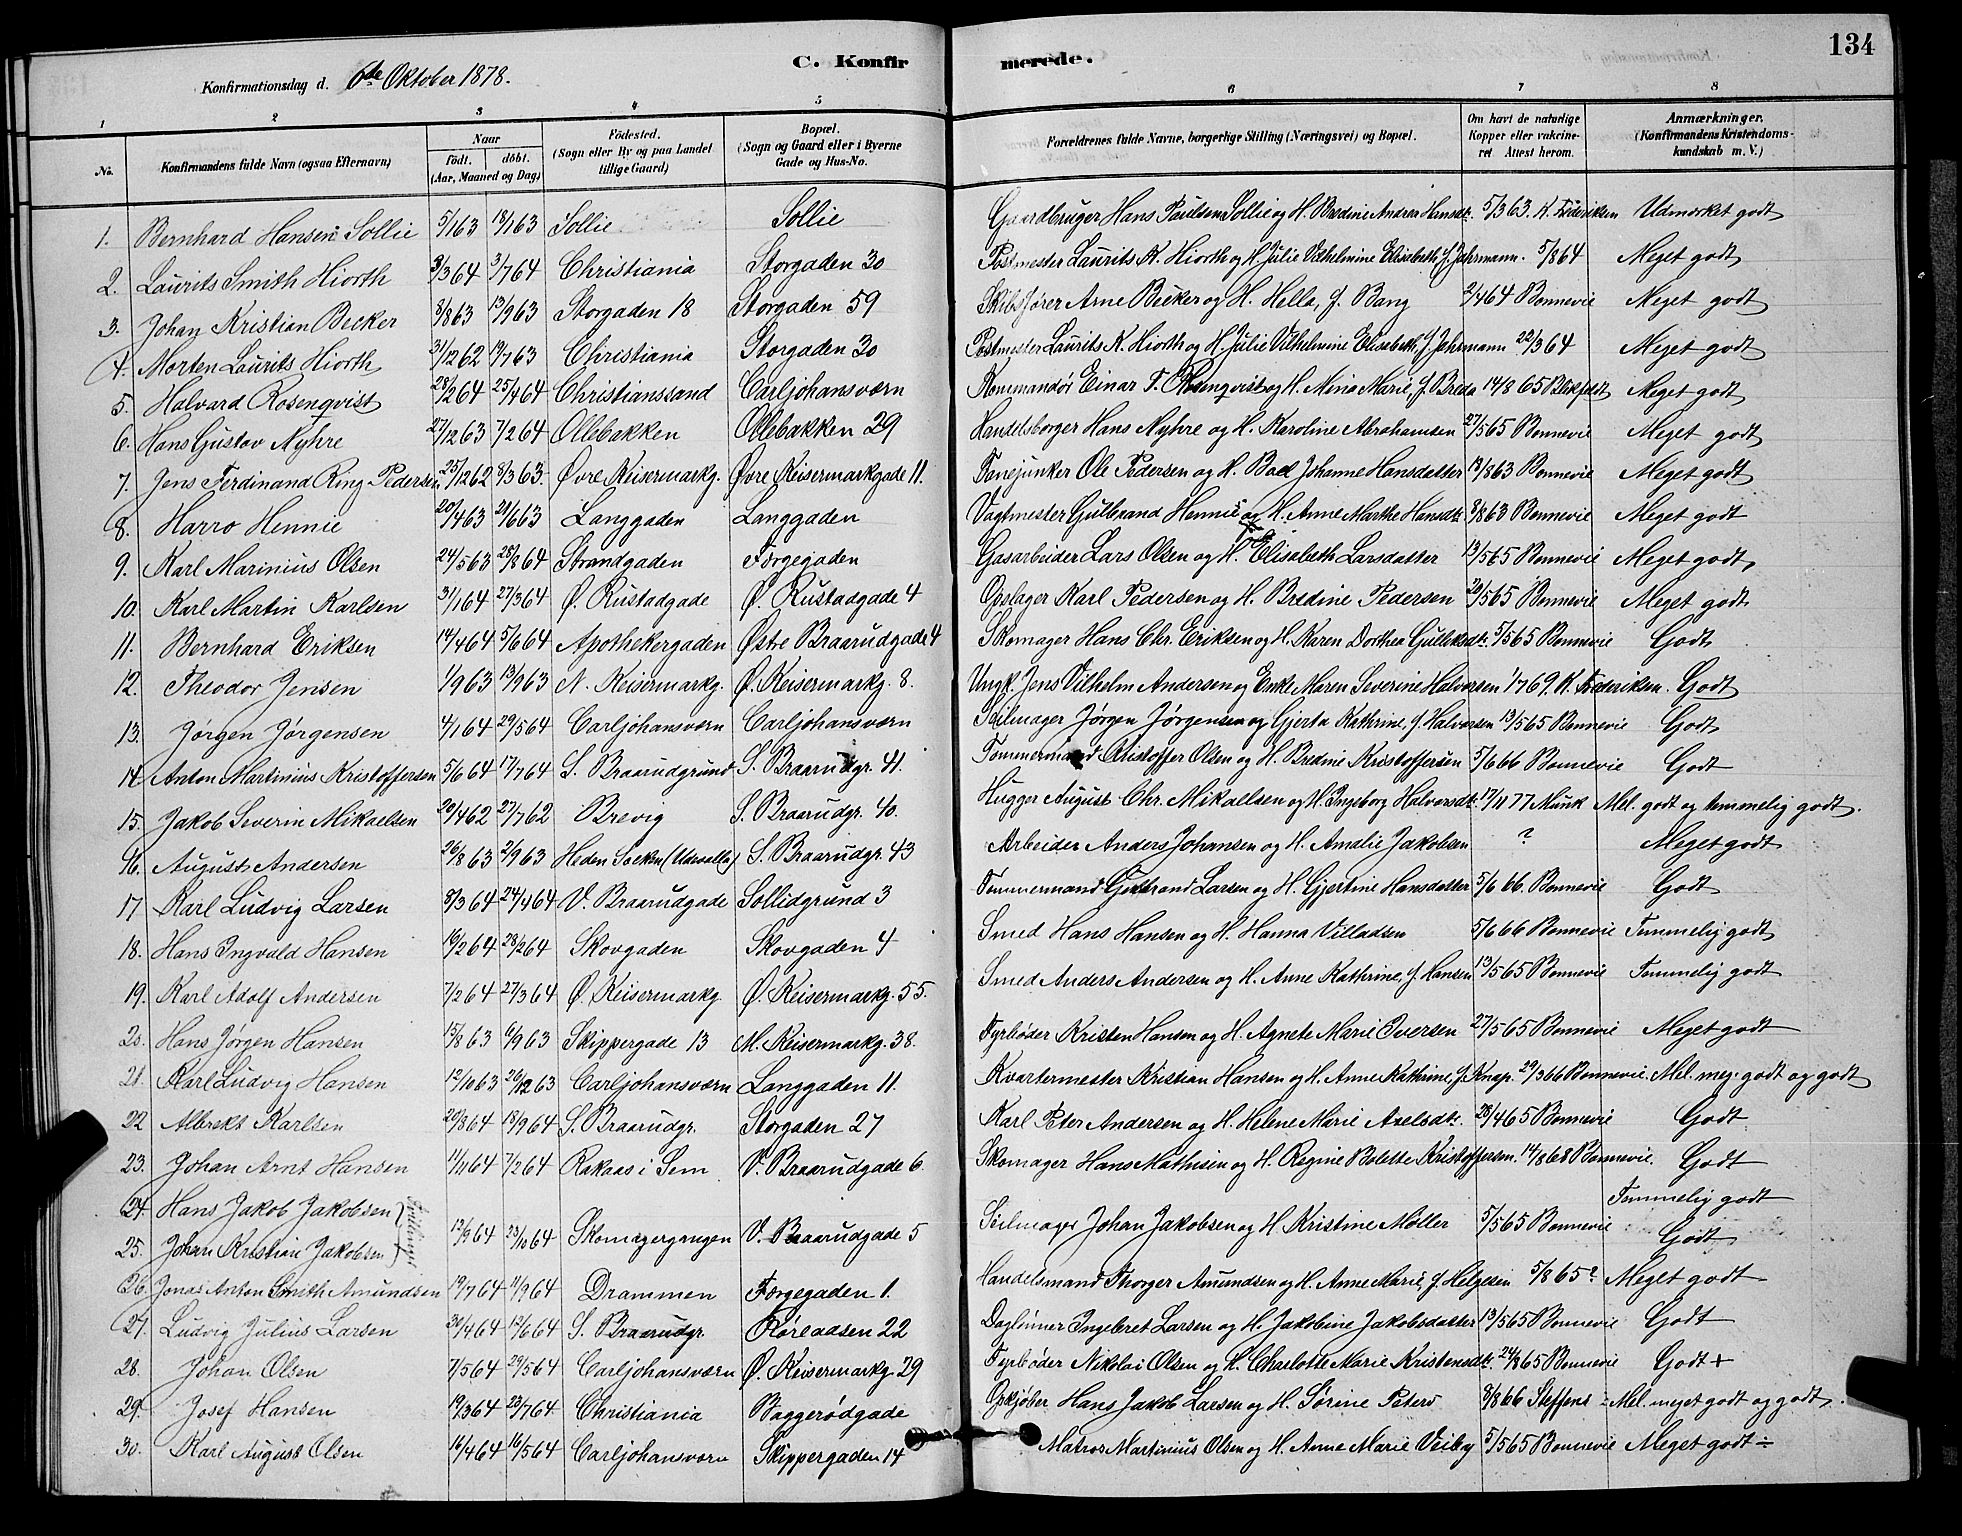 C. Konfirmerede. 134
Konfirmationsdag d. 6te Oktober 1878.
1 2 3 4 5 6 7 8
No. | Konfirmandens fulde Navn (ogsaa Efternavn) | Naar födt. döbt. (Aar, Maaned og Dag) | Födested. (Sogn eller By og paa Landet tillige Gaard) | Bopæl. (Sogn og Gaard eller i Byerne Gade og Hus-No. | Forældrenes fulde Navne, borgerlige Stilling (Næringsvei) og Bopæl. | Om havt de naturlige Kopper eller vakcineret. Attest herom. | Anmærkninger. (Konfirmandens Kristendomskundskab m. V.)
1. Bernhard Hansen Sollie 5/1 63 18/1 63 Sollie Sollie Gaardbruger Hans Paulsen Sollie og H. Bredine Andrea Hansdt. 5/3 63. K. Frederiksen Udmærket godt
2. Laurits Smith Hiorth 3/3 64 3/7 64 Christiania Storgaden 30 Postmester Laurits K. Hiorth og H. Julie Vilhelmine Elisabeth f. Jahrmann. 5/8 64 Meget godt
3. Johan Kristian Becker 8/8 63 13/9 63 Storgaden 18 Storgaden 59 Skibsfører Arne Becker og H. Hella, f. Bang 2/4 64 Bonnevie Meget godt
4. Morten Laurits Hiorth 31/12 62 19/7 63 Christiania Storgaden 30 Postmester Laurits K. Hiorth og H. Julie Vilhelmine Elisabeth f. Jahrmann 22/3 64 Meget godt
5. Halvard Rosenqvist 28/2 64 25/4 64 Christianssand Carljohansværn Kommandör Einar T. Rosenqvist og H. Nina Marie, f. Breda 14/8 65 Meget godt
6. Hans Gustav Nyhre 27/12 63 7/2 64 Ollebakken Ollebakken 29 Handelsborger Hans Nyhre og H. Karoline Abrahamsen 27/5 65 Bonnevie Meget godt
7. Jens Ferdinand Ring Pedersen 25/12 62 8/3 63. Øvre Keisermarkg. Øvre Keisermarkgade 11. Fanejunker Ole Pedersen og H. Boel Johanne Hansdatter 13/8 63 Bonnevie Meget godt
8. Harro Hennie 20/4 63 21/6 63 Langgaden Langgaden Vagtmester Gulbrand Hennie og H. Anne Marthe Hansdt. 3/8 63 Bonnevie Meget godt
9. Karl Marinius Olsen 24/5 63 28/8 64 Strandgaden Førgegaden Gasarbeider Lars Olsen og H. Elisabeth Larsdatter 13/5 65 Bonnevie Meget godt
10. Karl Martin Karlsen 31/1 64 27/3 64 Ø. Rustadgade Ø. Rustadgade 4 Opslager Karl Pedersen og H. Bredine Pedersen 20/5 65 Bonnevie Meget godt
11. Bernhard Eriksen 14/4 64 5/6 64 Apothekergaden Østre Braarudgade 4 Skomager Hans Chr. Eriksen og H. Karen Dorthea Gulliksdt. 5/5 65 Bonnevie Godt
12. Theodor Jensen 1/9 63 13/9 63 N. Keisermarkg. Ø. Keisermarkg. 8. Ungk. Jens Vilhelm Andersen og Enke Maren Severine Halvorsen 1/7 69. K. Frederiksen. Godt
13. Jørgen Jørgensen 4/1 64 29/5 64 Carljohansværn Carljohansværn Seilmager Jørgen Jørgensen og Gjerta Kathrine, f. Halvorsen 13/5 65 Bonnevie Godt
14. Anton Martinius Kristoffersen 5/6 64 17/7 64 S. Braarudgrund S. Braarudgr. 41. Tömmermand Kristoffer Olsen og H. Bredine Kristoffersen 5/6 66 Bonnevie Godt
15. Jakob Severin Mikaelsen 20/4 62 27/7 62 Brevig S. Braarudgr. 40. Hugger August Chr. Mikaelsen og H. Ingeborg Halvorsdt. 17/11 77 Munk Mel. godt og temmelig godt.
16. August Andersen 26/8 63 2/9 63 Heden Socken (Udevalla) S. Braarudgr. 43 Arbeider Anders Johansen og H. Amalie Jakobsen ? Meget godt
17 Karl Ludvig Larsen 8/3 64 24/4 64 V. Braarudgade Sollidgrund 3 Tömmermand Gulbrand Larsen og H. Gjertine Hansdatter 5/6 66. Bonnevie Godt
18. Hans Ingvald Hansen 19/2 64 28/2 64 Skovgaden Skovgaden 4 Smed Hans Hansen og H. Hanna Villadsen 5/6 66 Bonnevie Temmelig godt
19. Karl Adolf Andersen 7/2 64 27/3 64 Ø. Keisermarkg. Ø. Keisermarkg. 55. Smed Anders Andersen og H. Anne Kathrine, f. Hansen 13/5 65 Bonnevie Temmelig godt
20. Hans Jørgen Hansen 15/8 63 6/9 63 Skippergade 13 M. Keisermarkg. 38. Fyrbøder Kristen Hansen og H. Agnete Marie Iversen 27/5 65 Bonnevie Meget godt
21. Karl Ludvig Hansen 12/10 63 26/12 63 Carljohansværn Langgaden 11. Kvartermester Kristian Hansen og H. Anne Kathrine, f. Knap. 29/3 66 Bonnevie. Mel. meg. godt og godt
22 Albrekt Karlsen 20/8 64 18/9 64 S. Braarudgr. Storgaden 27 Karl Peter Andersen og H. Helene Marie Axelsdt. 28/4 65 Bonnevie Godt
23. Johan Arnt Hansen 11/1 64 7/2 64 Rakaas i Sem V. Braarudgade 6. Skomager Hans Mathisen og H. Regine Bolette Kristoffersen. 14/8 68 Bonnevie. Godt
24. Hans Jakob Jakobsen Temmelig godt
Tvillinger 13/9 64 23/10 64 Skomagergangen V. Braarudgade 5 Seilmager Johan Jakobsen og H. Kristine Möller 5/5 65 Bonnevie
25. Johan Kristian Jakobsen Godt
26. Jonas Anton Smith Amundsen 19/7 64 11/9 64 Drammen Førgegaden 1. Handelsmand Thorger Amundsen og H. Anne Marie, f. Helgesen 5/8 65? Meget godt
27. Ludvig Julius Larsen 30/4 64 12/6 64 S. Braarudgr. Röreaasen 22 Daglönner Ingebret Larsen og H. Jakobine Jakobsdatter 13/5 65 Bonnevie Godt
28. Johan Olsen 7/5 64 29/5 64 Carljohansværn Ø. Keisermarkg. 29 Fyrbøder Nikolai Olsen og H. Charlotte Marie Kristensdt. 24/8 65 Bonnevie Godt +
29. Josef Hansen 19/3 64 23/7 64 Christiania Baggerödgade Opkjøber Hans Jakob Larsen og H. Sörine Peters 8/8 66 Steffens Mel. meget godt og godt.
30. Karl August Olsen 16/4 64 16/5 64 Carljohansværn Skippergaden 14 Matros Martinius Olsen og H. Anne Marie Veiby 5/5 65 Bonnevie Meget godt ÷